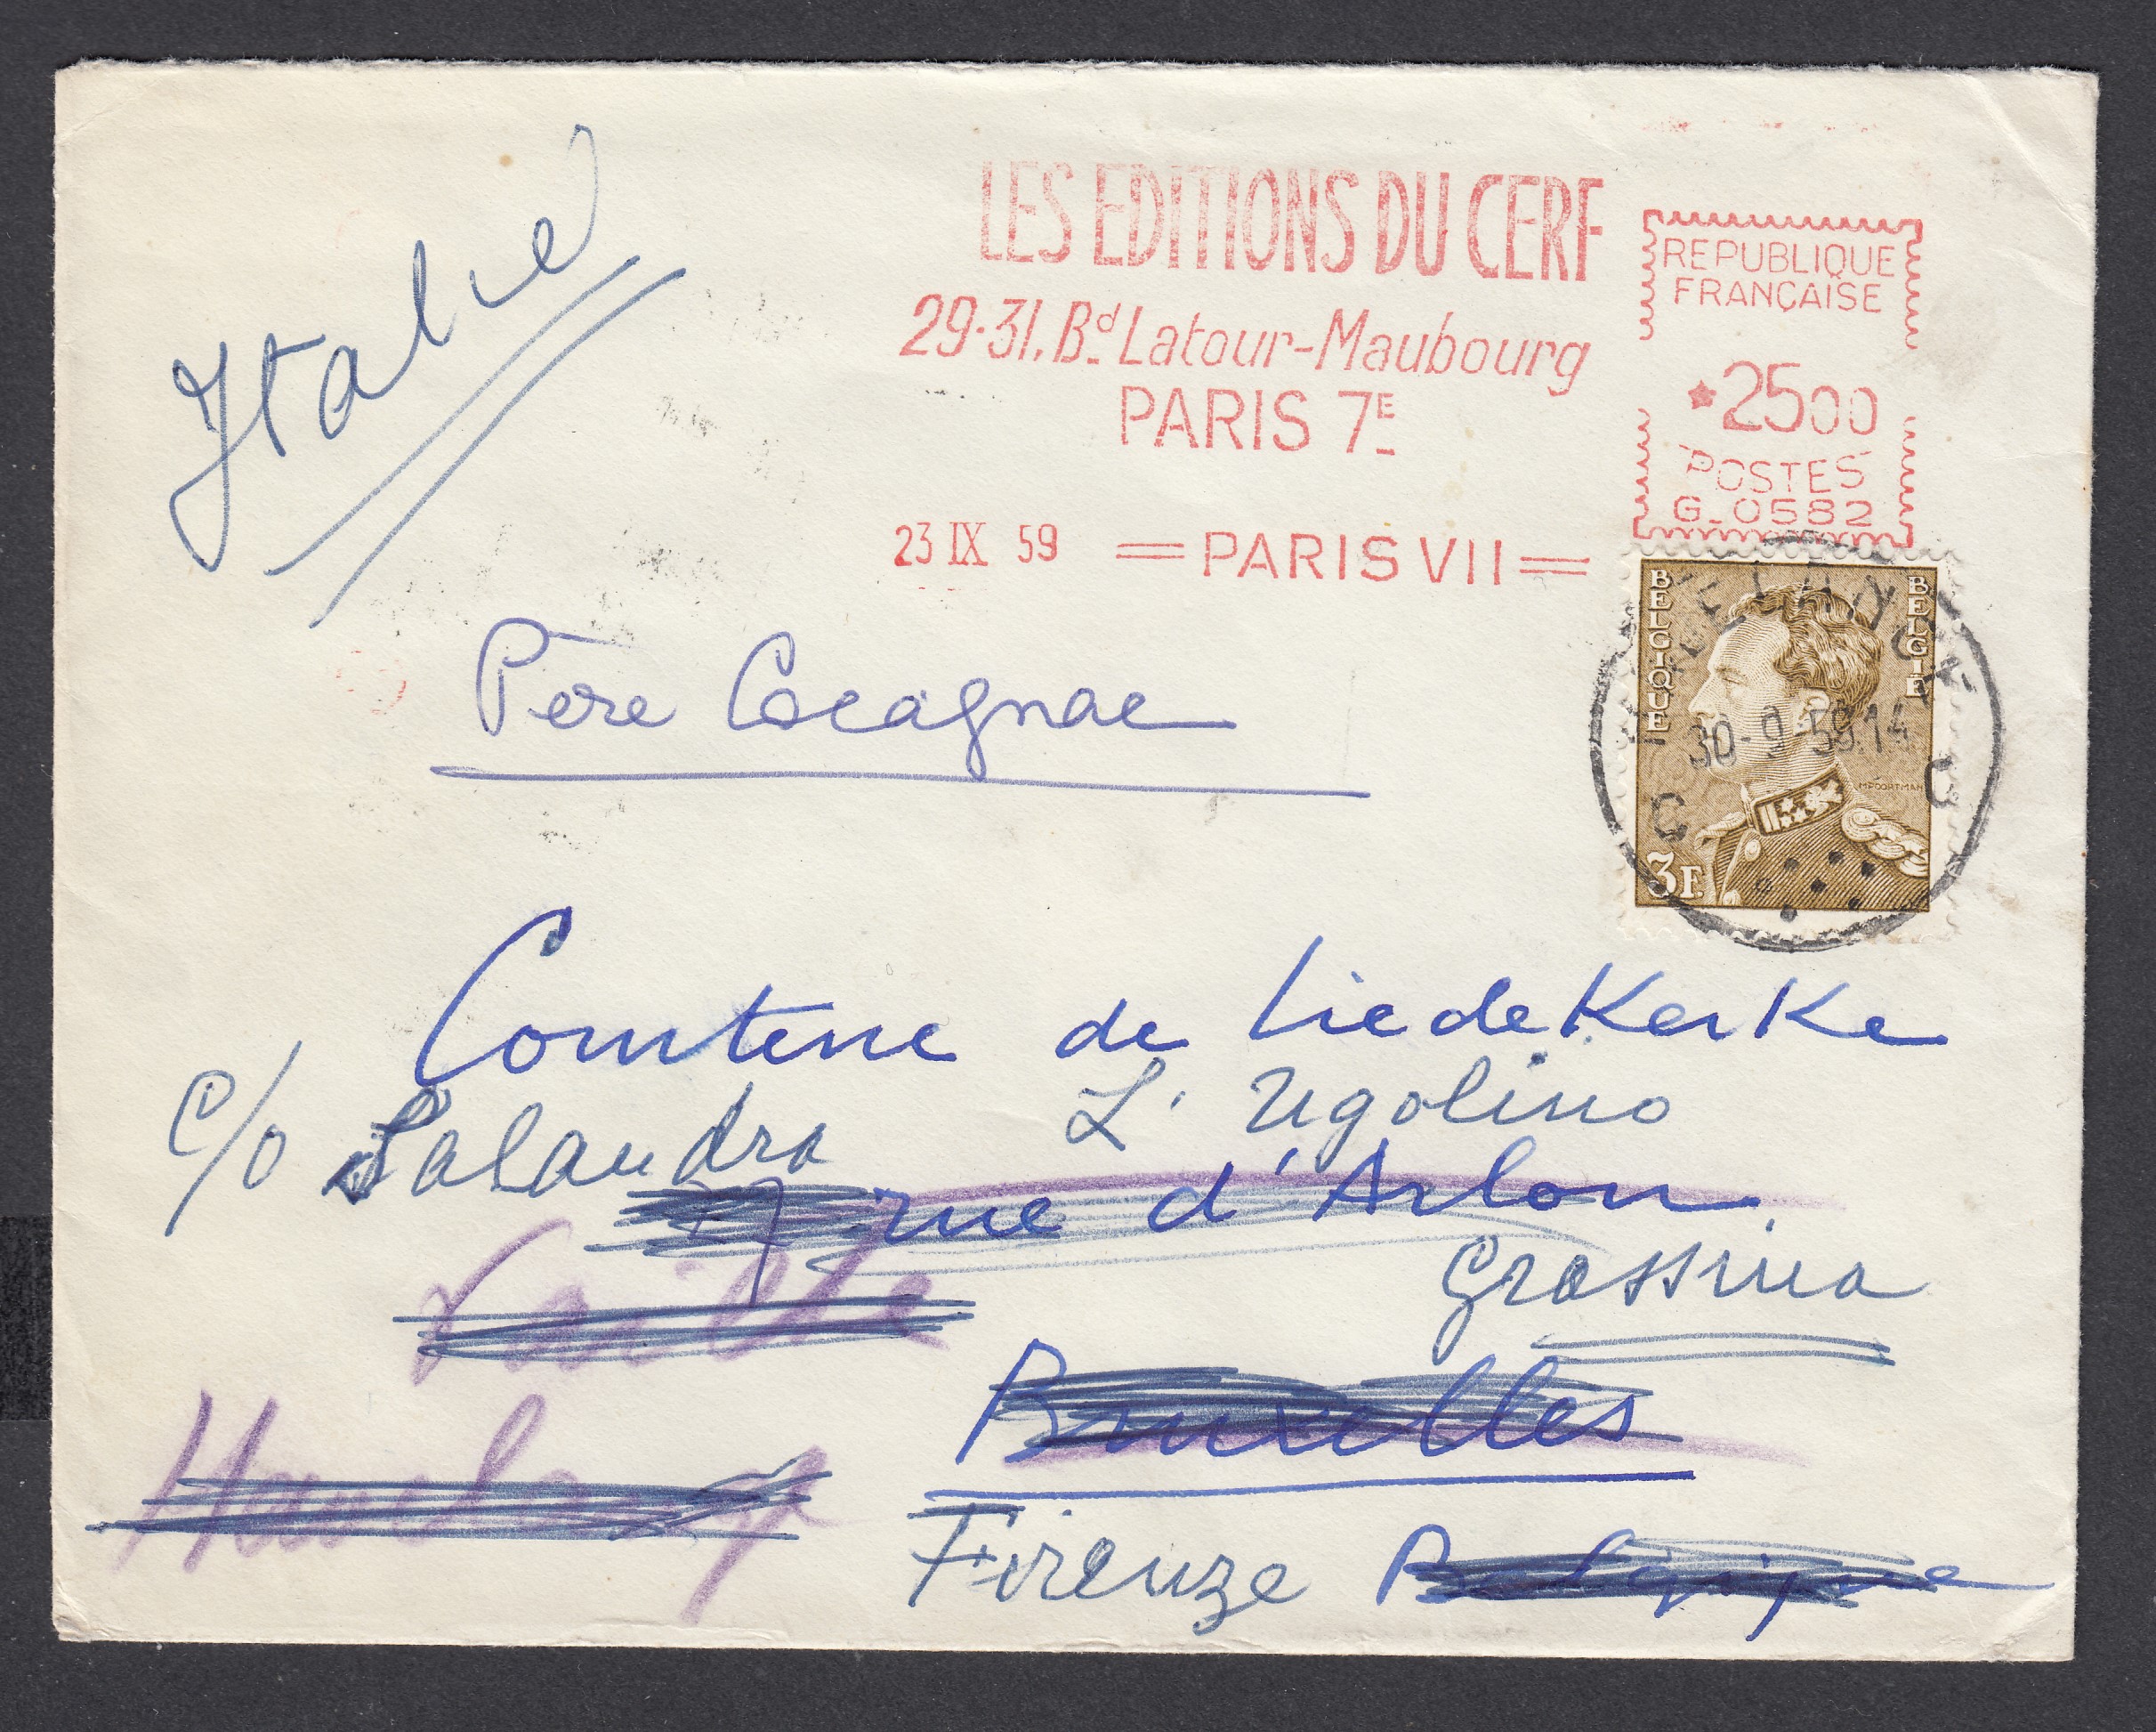 Italie
LES EDITIONS DU CERF
29-31, Bd Latour-Maubourg
PARIS 7E
23 IX 59 = PARIS VII =
REPUBLIQUE
FRANÇAISE
*2500
POSTES
G_0582
BELGIQUE
BELGIE
30-9-59.14
C C
MPOORTMAN
3F.
Père Cocagnac
Comtesse de Liedekerke
C/o Salandra L'Ugolino
rue d'Arlon.
Grassina
Bruxelles
Firenze Belgique